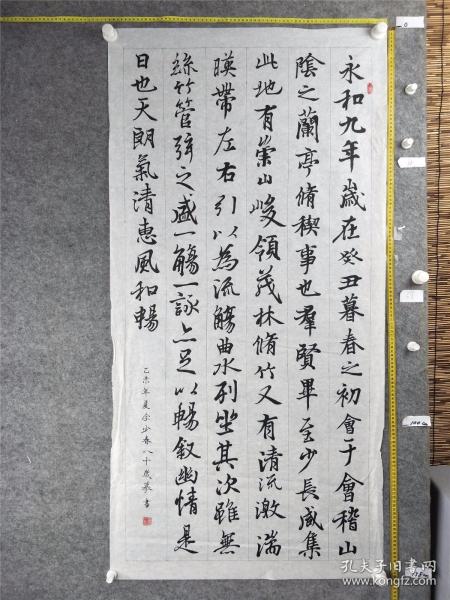 永和九年歲在癸丑暮春之初會于會稽山
陰之蘭亭脩稧事也羣賢畢至少長咸集
此地有崇山峻領茂林脩竹又有清流激湍
暎帶左右引以為流觴曲水列坐其次雖無
絲竹管弦之盛一觴一詠亦足以暢叙幽情是
日也天朗氣清惠風和暢
乙未年夏余少春八十歲摹書
孔夫子旧书网